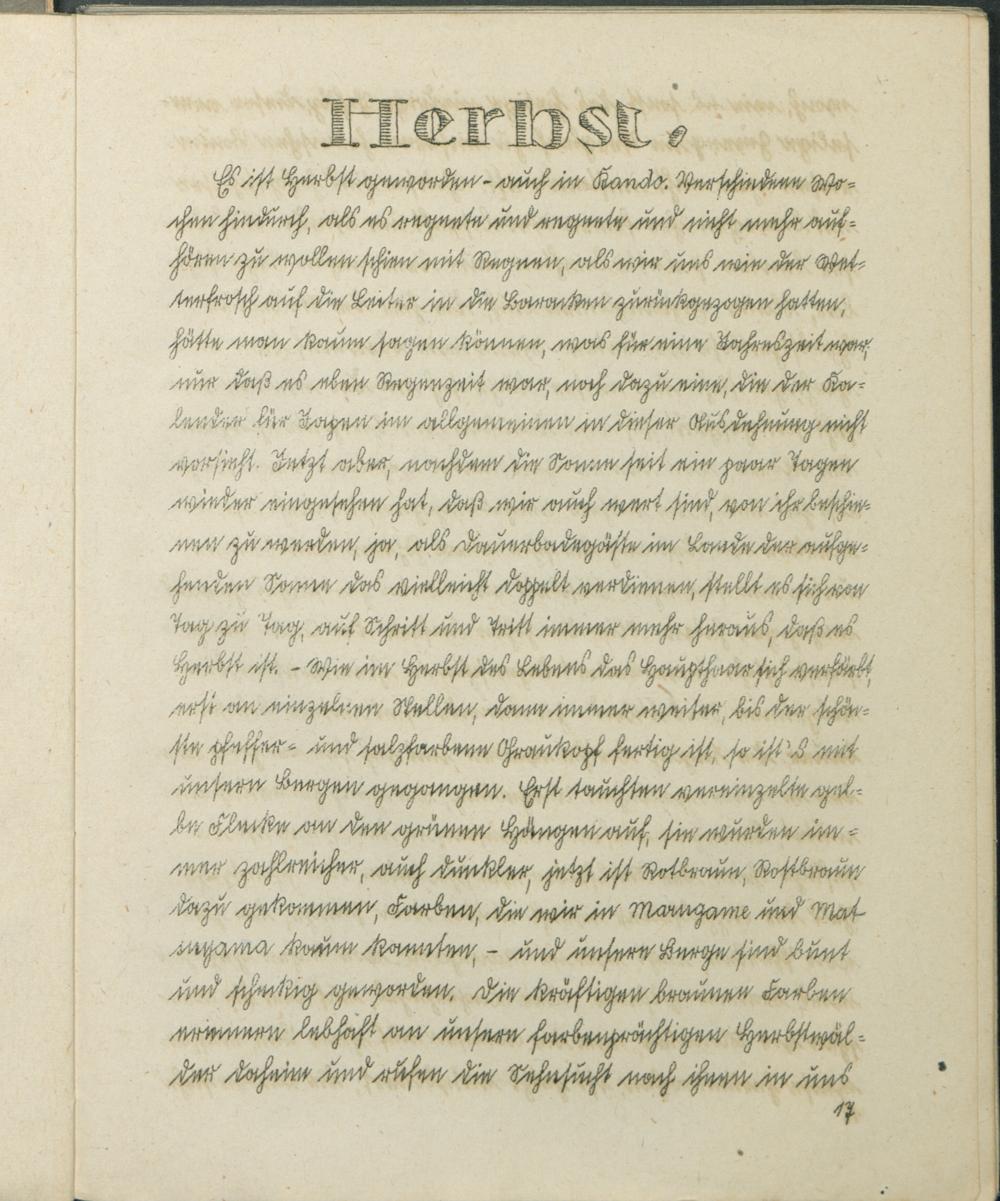 Herbst.
Es ist Herbst geworden - auch in Bando. Verschiedene Wo-
chen hindurch, als es regnete und regnete und nicht mehr auf-
hören zu wollen schien mit Regnen, als wir uns wie der Wet-
terfrosch auf die Leiter in die Baracken zurückgezogen hatten,
hätte man kaum sagen können, was für eine Jahreszeit war,
nur daß es eben Regenzeit war, noch dazu eine, die der Ka-
lender für Japan im allgemeinen in dieser Ausdehnung nicht
vorsieht. Jetzt aber, nachdem die Sonne seit ein paar Tagen
wieder eingesehen hat, daß wir auch wert sind, von ihr beschie-
nen zu werden, ja, als Dauerbadegäste im Lande der aufge-
henden Sonne das vielleicht doppelt verdienen, stellt es sich von
Tag zu Tag, auf Schritt und Tritt immer mehr heraus, daß es
Herbst ist. - Wie im Herbst des Lebens das Haupthaar sich verfärbt,
erst an einzelnen Stellen, dann immer weiter, bis der schön-
ste pfeffer- und salzfarbene Graukopf fertig ist, so ist's mit
unsern Bergen gegangen. Erst tauchten vereinzelte gel-
be Flecke an den grünen Hängen auf, sie wurden im-
mer zahlreicher, auch dunkler, jetzt ist Rotbraun, Rostbraun
dazu gekommen, Farben, die wir in Marugame und Mat
suyama kaum kannten, - und unsere Berge sind bunt
und scheckig geworden. Die kräftigen braunen Farben
erinnern lebhaft an unsern farbenprächtigen Herbstwäl-
der daheim und rufen die Sehnsucht nach ihnen in uns
17